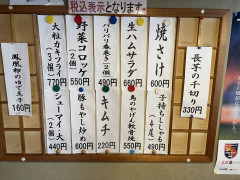 税込表示となります。
長芋の千切り
330円
焼さけ
600円
子持ちししゃも
(4尾)
440円
生ハムサラダ
660円
鳥のやげん軟骨焼
550円
パリパリ春巻き
(2個)
490円
キムチ
220円
野菜コロッケ
(2個)
550円
豚もやし炒め
600円
大粒カキフライ
(3個)
770円
シューマイ
440円
160円